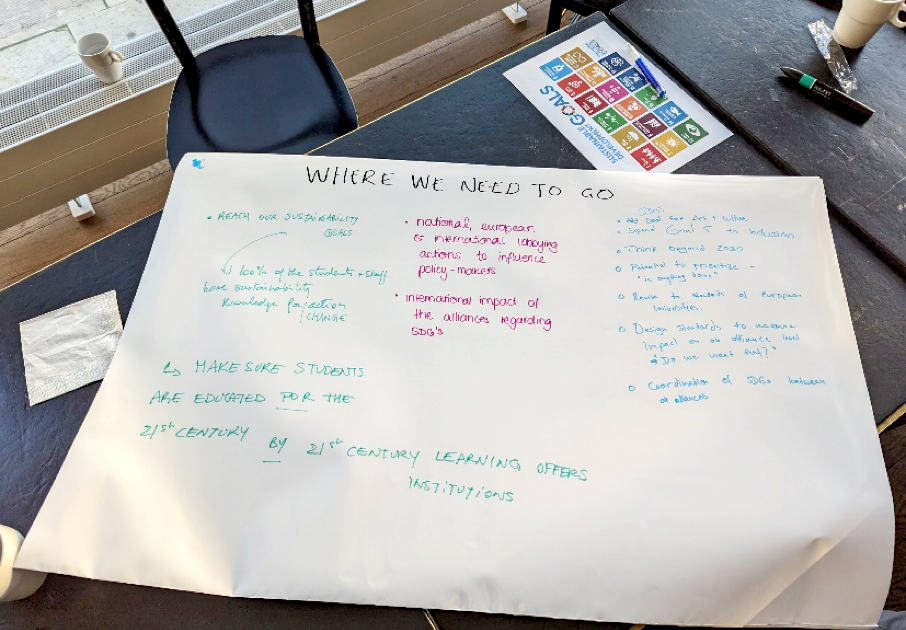 WHERE WE NEED TO GO
• REACH OUR SUSTAINABILITY
GOALS
100% of the students + staff
have sustainability
knowledge for action
/ CHANGE
↳ MAKE SURE STUDENTS
ARE EDUCATED FOR THE
21st CENTURY BY 21st CENTURY LEARNING OFFERS
INSTITUTIONS
• national, european
& international lobbying
actions to influence
policy-makers
• International impact of
the alliances regarding
SDG's
Goal for Art + Culture
• Expand Goal 5 to inclusion
• Think beyond 2030
• Potential to prioritize -
"Is anything done"
• to students of European
Universities.
• Design standards to measure
impact on an alliance level
"Do we want that?"
• Coordination of SDGs between
alliances
SUSTAINABLE
DEVELOPMENT
GOALS